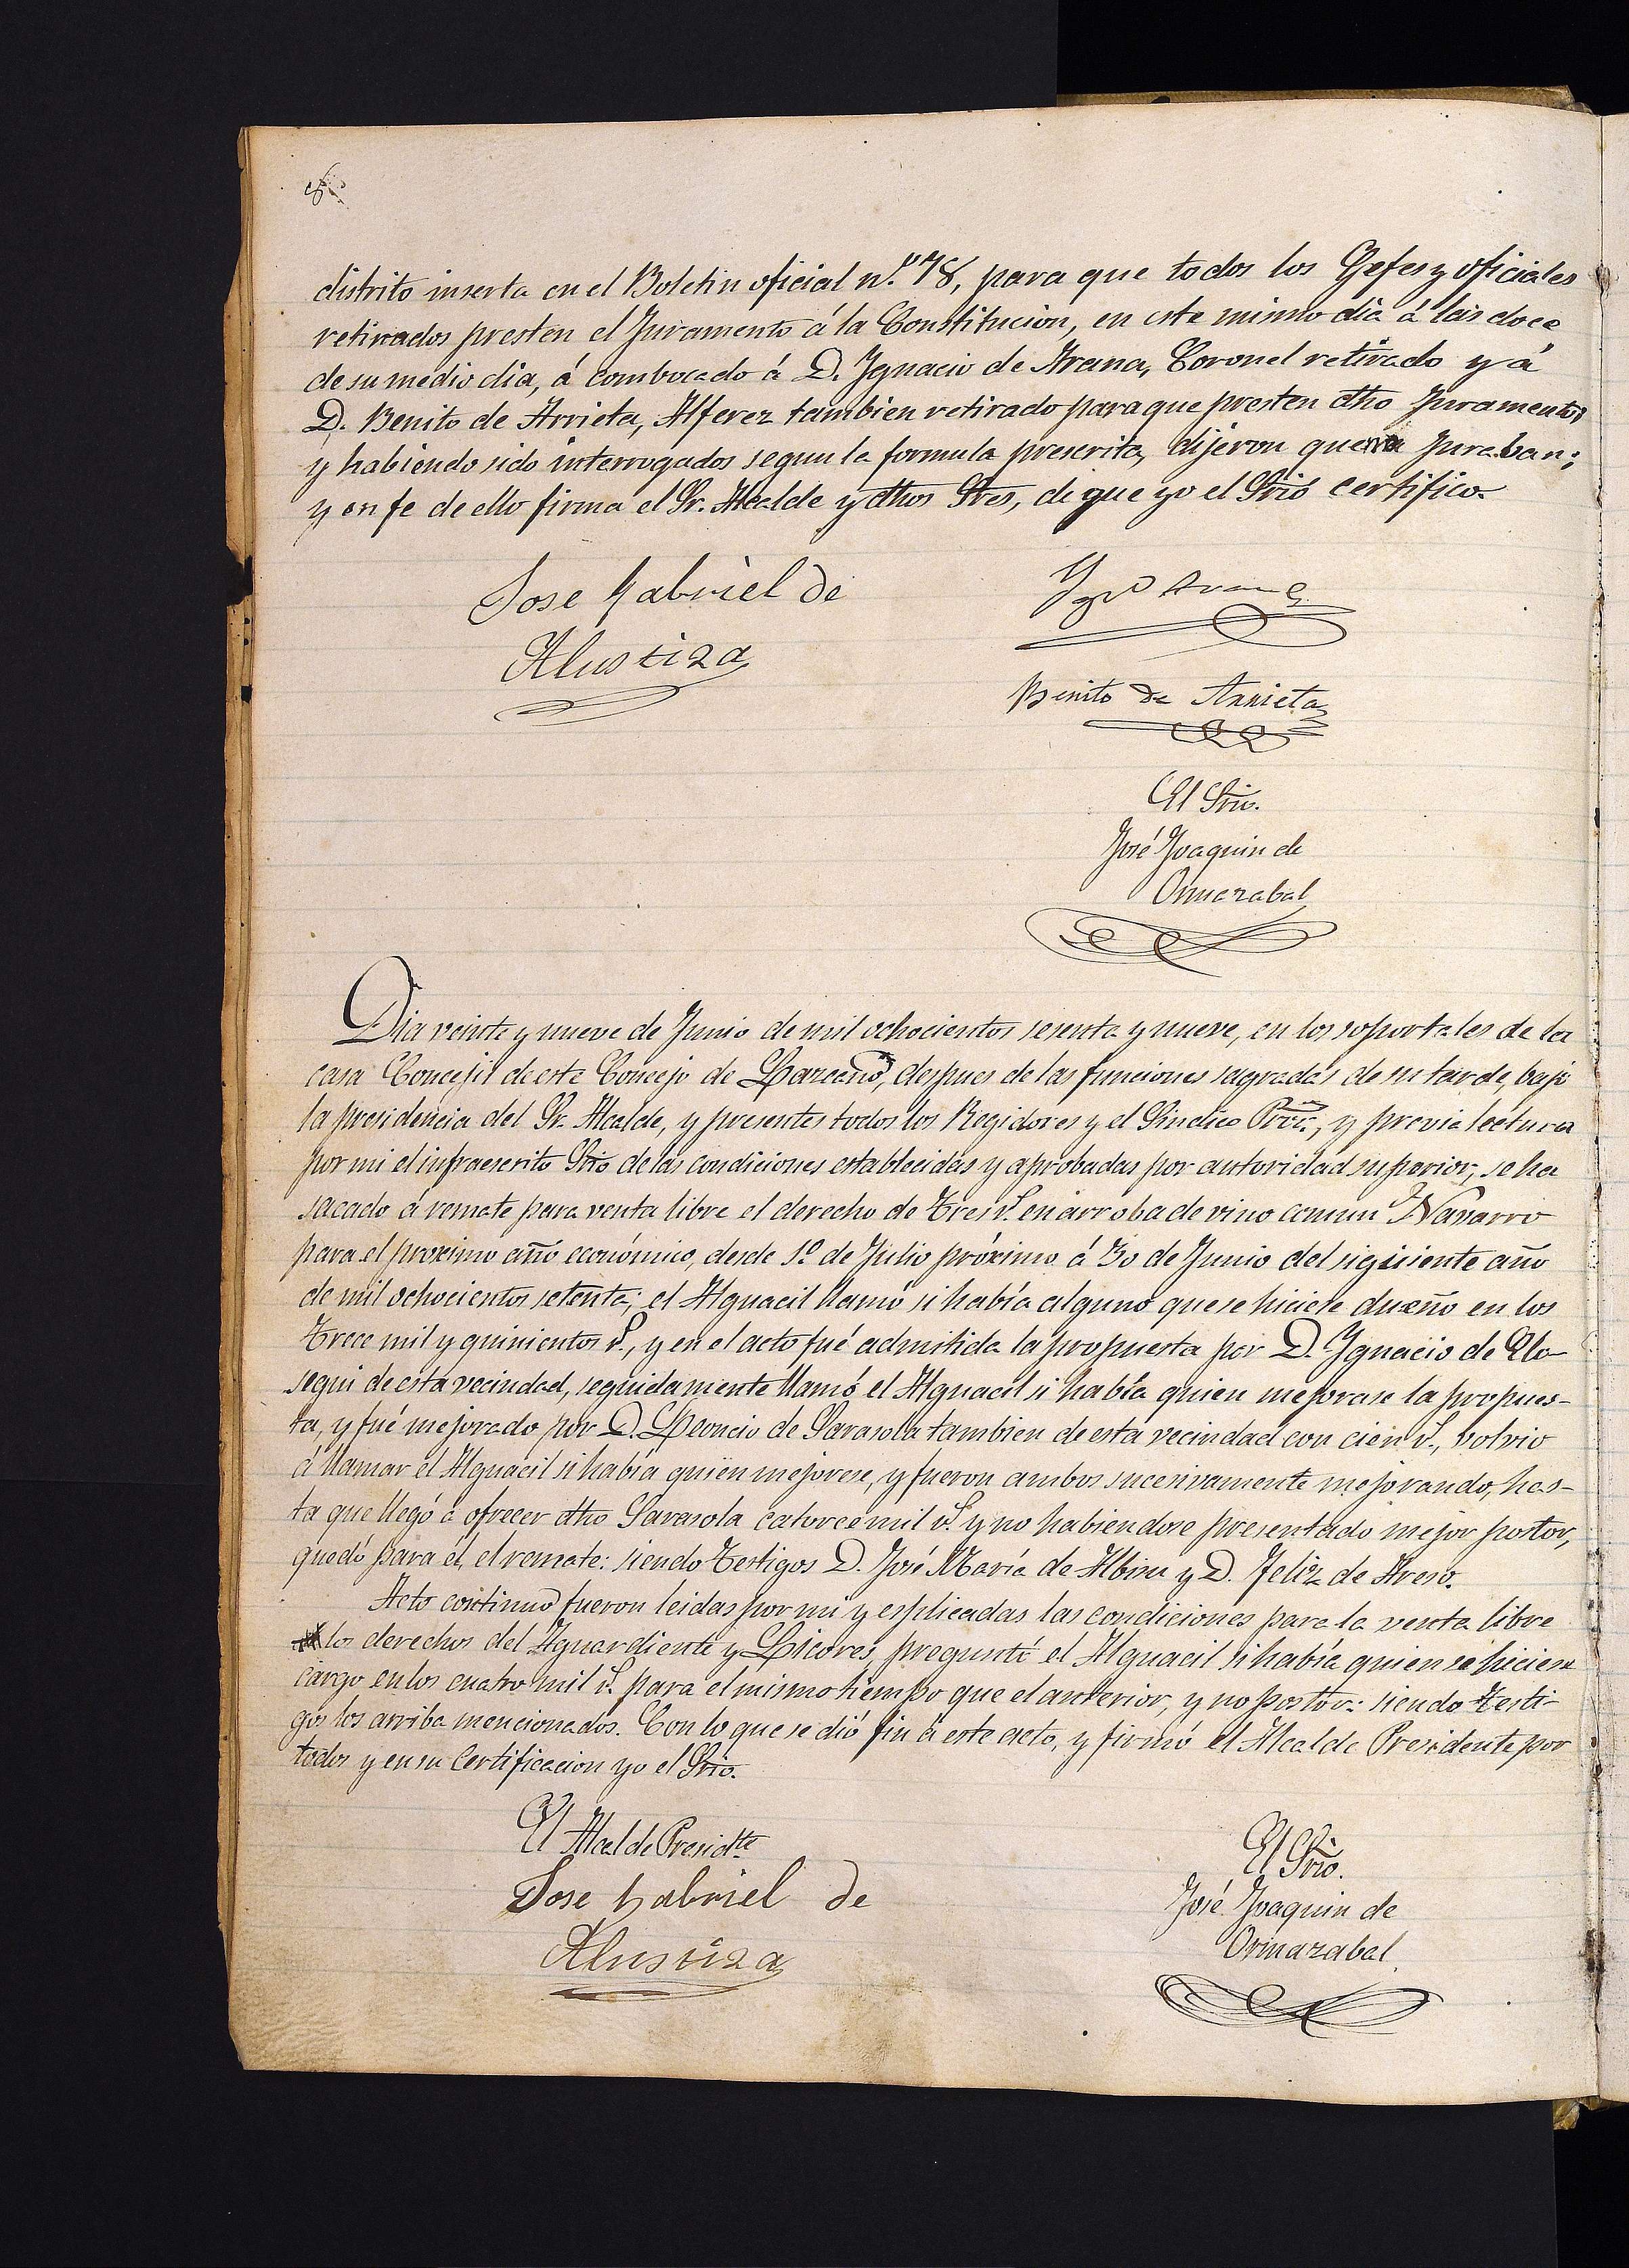 distrito inserta en el Boletin oficial n.º 78, para que todos los Gefes y oficiales
retirados presten el Juramento á la Constitucion, en este mismo dia á las doce
de su medio dia, á combocado á D. Ygnacio de Arana, Coronel retirado y á
D. Benito de Arrieta, Alferez tambien retirado para que presten dho Juramento,
y habiendo sido interrogados segun la formula prescrita, dijeron que Juraban;
y en fe de ello firma el Sr. Alcalde y dhos Sres, de que yo el Srio certifico.
Jose Gabriel de
Alustiza
Ygno Arana
Benito de Arrieta
El Srio.
José Joaquin de
Ormazabal
Dia veinte y nueve de Junio de mil ochocientos sesenta y nueve, en los soportales de la
casa Concejil de este Concejo de Lazcano, despues de las funciones sagradas de su tarde, bajo
la presidencia del Sr. Alcalde, y presentes todos los Regidores y el Sindico, y previa lectura
por mi el infraescrito Srio de las condiciones establecidas y aprobadas por autoridad superior, se ha
sacado á remate para venta libre el derecho de Tres r.s en arroba de vino comun Navarro
para el proximo año económico, desde 1.º de Julio próximo á 30 de Junio del siguiente año
de mil ochocientos setenta; el Alguacil llamó si había alguno que se hiciese dueño en los
Trece mil y quinientos r.s, y en el acto fué admitida la propuesta por D. Ygnacio de Elo-
segui de esta vecindad, seguidamente llamó el Alguacil si había quien mejorase la propues-
ta, y fué mejorado por D. Leoncio de Sarasola tambien de esta vecindad con cien r.s, volvio
á llamar el Alguacil si había quien mejorese, y fueron ambos sucesivamente mejorando, has-
ta que llegó á ofrecer dho Sarasola catorce mil r.s y no habiendose presentado mejor postor,
quedó para él, el remate: siendo Testigos D. José María de Albisu y D. Feliz de Areso.
Acto continuo fueron leidas por mi y esplicadas las condiciones para la venta libre
los derechos del Aguardiente y Licores, preguntó el Alguacil si había quien se hiciese
cargo en los cuatro mil r.s para el mismo tiempo que el anterior, y no postor: siendo Testi-
gos los arriba mencionados. Con lo que se dió fin á este acto, y firmó el Alcalde Presidente por
todos y en su Certificacion yo el Srio.
El Alcalde Presidte
Jose Gabriel de
Alustiza
El Srio.
José Joaquin de
Ormazabal